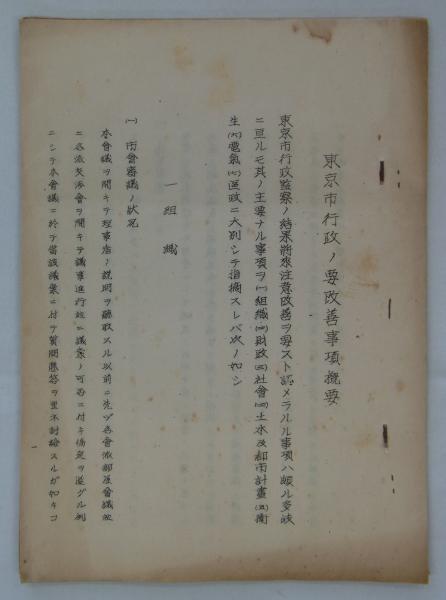 東京市行政ノ要改善事項概要
東京市行政監察ノ結果將來注意改善ヲ要スト認メラルル事項ハ頗ル多岐
ニ亘ルモ其ノ主要ナル事項ヲ(一)組織(二)財政(三)社會(四)土木及都市計畫(五)衛
生(六)電氣(七)区政ニ大別シテ指摘スレバ次ノ如シ
一 組 織
(一) 市會審議ノ狀況
本會議ヲ開キテ理事者ノ説明ヲ聽取スル以前ニ先ヅ各會派部屋會議並
ニ各派交渉會ヲ開キテ議事進行竝ニ議案ノ可否ニ付キ協定ヲ遂グル例
ニシテ本會議ニ於テ當該議案ニ付テ質問應答ヲ重ネ討論スルガ如キコ